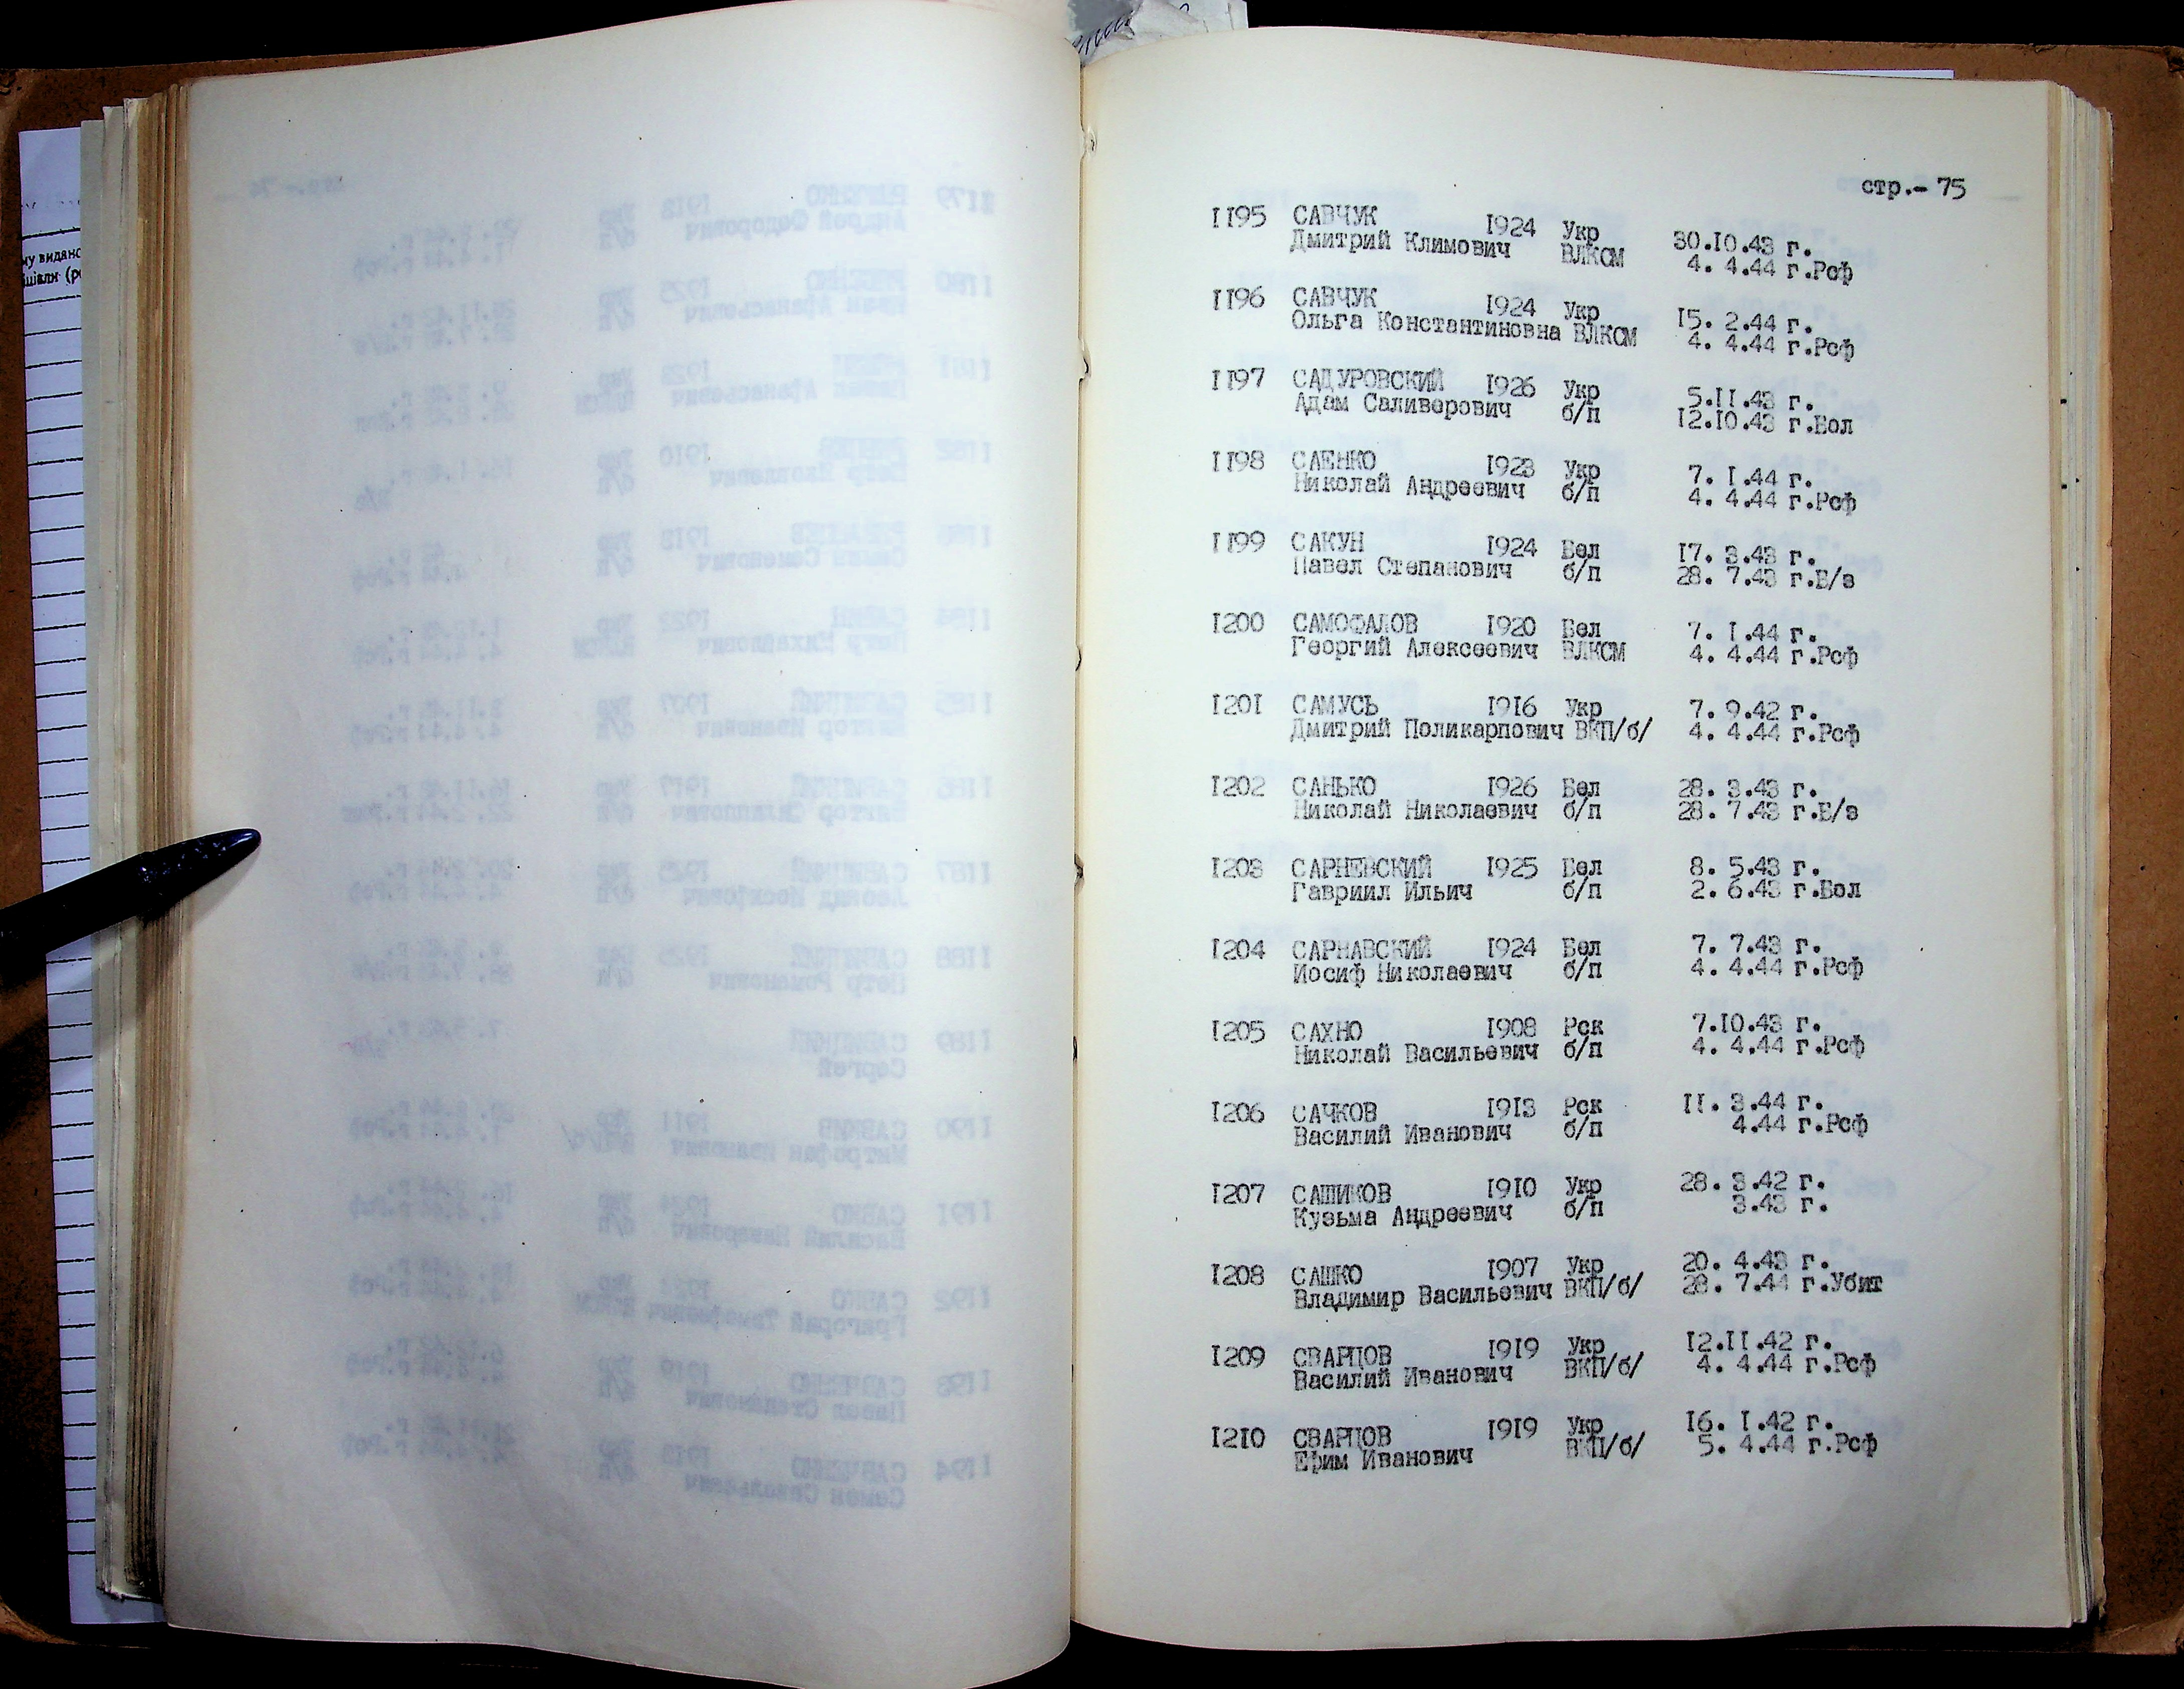 стр.- 75
1195 САВЧУК 1924 Укр 30.10.43 г.
Дмитрий Климович ВЛКСМ 4. 4.44 г.Рсф
1196 САВЧУК 1924 Укр 15. 2.44 г.
Ольга Константиновна ВЛКСМ 4. 4.44 г.Рсф
1197 САДУРОВСКИЙ 1926 Укр 5.11.43 г.
Адам Саливерович б/п 12.10.43 г.Бол
1198 САЕНКО 1923 Укр 7. 1.44 г.
Николай Андреевич б/п 4. 4.44 г.Рсф
1199 САКУН 1924 Бел 17. 3.43 г.
Павел Степанович б/п 28. 7.43 г.Б/з
1200 САМОФАЛОВ 1920 Бел 7. 1.44 г.
Георгий Алексеевич ВЛКСМ 4. 4.44 г.Рсф
1201 САМУСЬ 1916 Укр 7. 9.42 г.
Дмитрий Поликарпович ВКП/б/ 4. 4.44 г.Рсф
1202 САНЬКО 1926 Бел 28. 3.43 г.
Николай Николаевич б/п 28. 7.43 г.Б/з
1203 САРНЕВСКИЙ 1925 Бел 8. 5.43 г.
Гавриил Ильич б/п 2. 6.43 г.Бол
1204 САРНАВСКИЙ 1924 Бел 7. 7.43 г.
Иосиф Николаевич б/п 4. 4.44 г.Рсф
1205 САХНО 1908 Рск 7.10.43 г.
Николай Васильевич б/п 4. 4.44 г.Рсф
1206 САЧКОВ 1913 Рск 11. 3.44 г.
Василий Иванович б/п 4.44 г.Рсф
1207 САШИКОВ 1910 Укр 28. 3.42 г.
Кузьма Андреевич б/п 3.43 г.
1208 САШКО 1907 Укр 20. 4.43 г.
Владимир Васильевич ВКП/б/ 28. 7.44 г.Убит
1209 СВАРЦОВ 1919 Укр 12.11.42 г.
Василий Иванович ВКП/б/ 4. 4.44 г.Рсф
1210 СВАРЦОВ 1919 Укр 16. 1.42 г.
Ефим Иванович ВКП/б/ 5. 4.44 г.Рсф